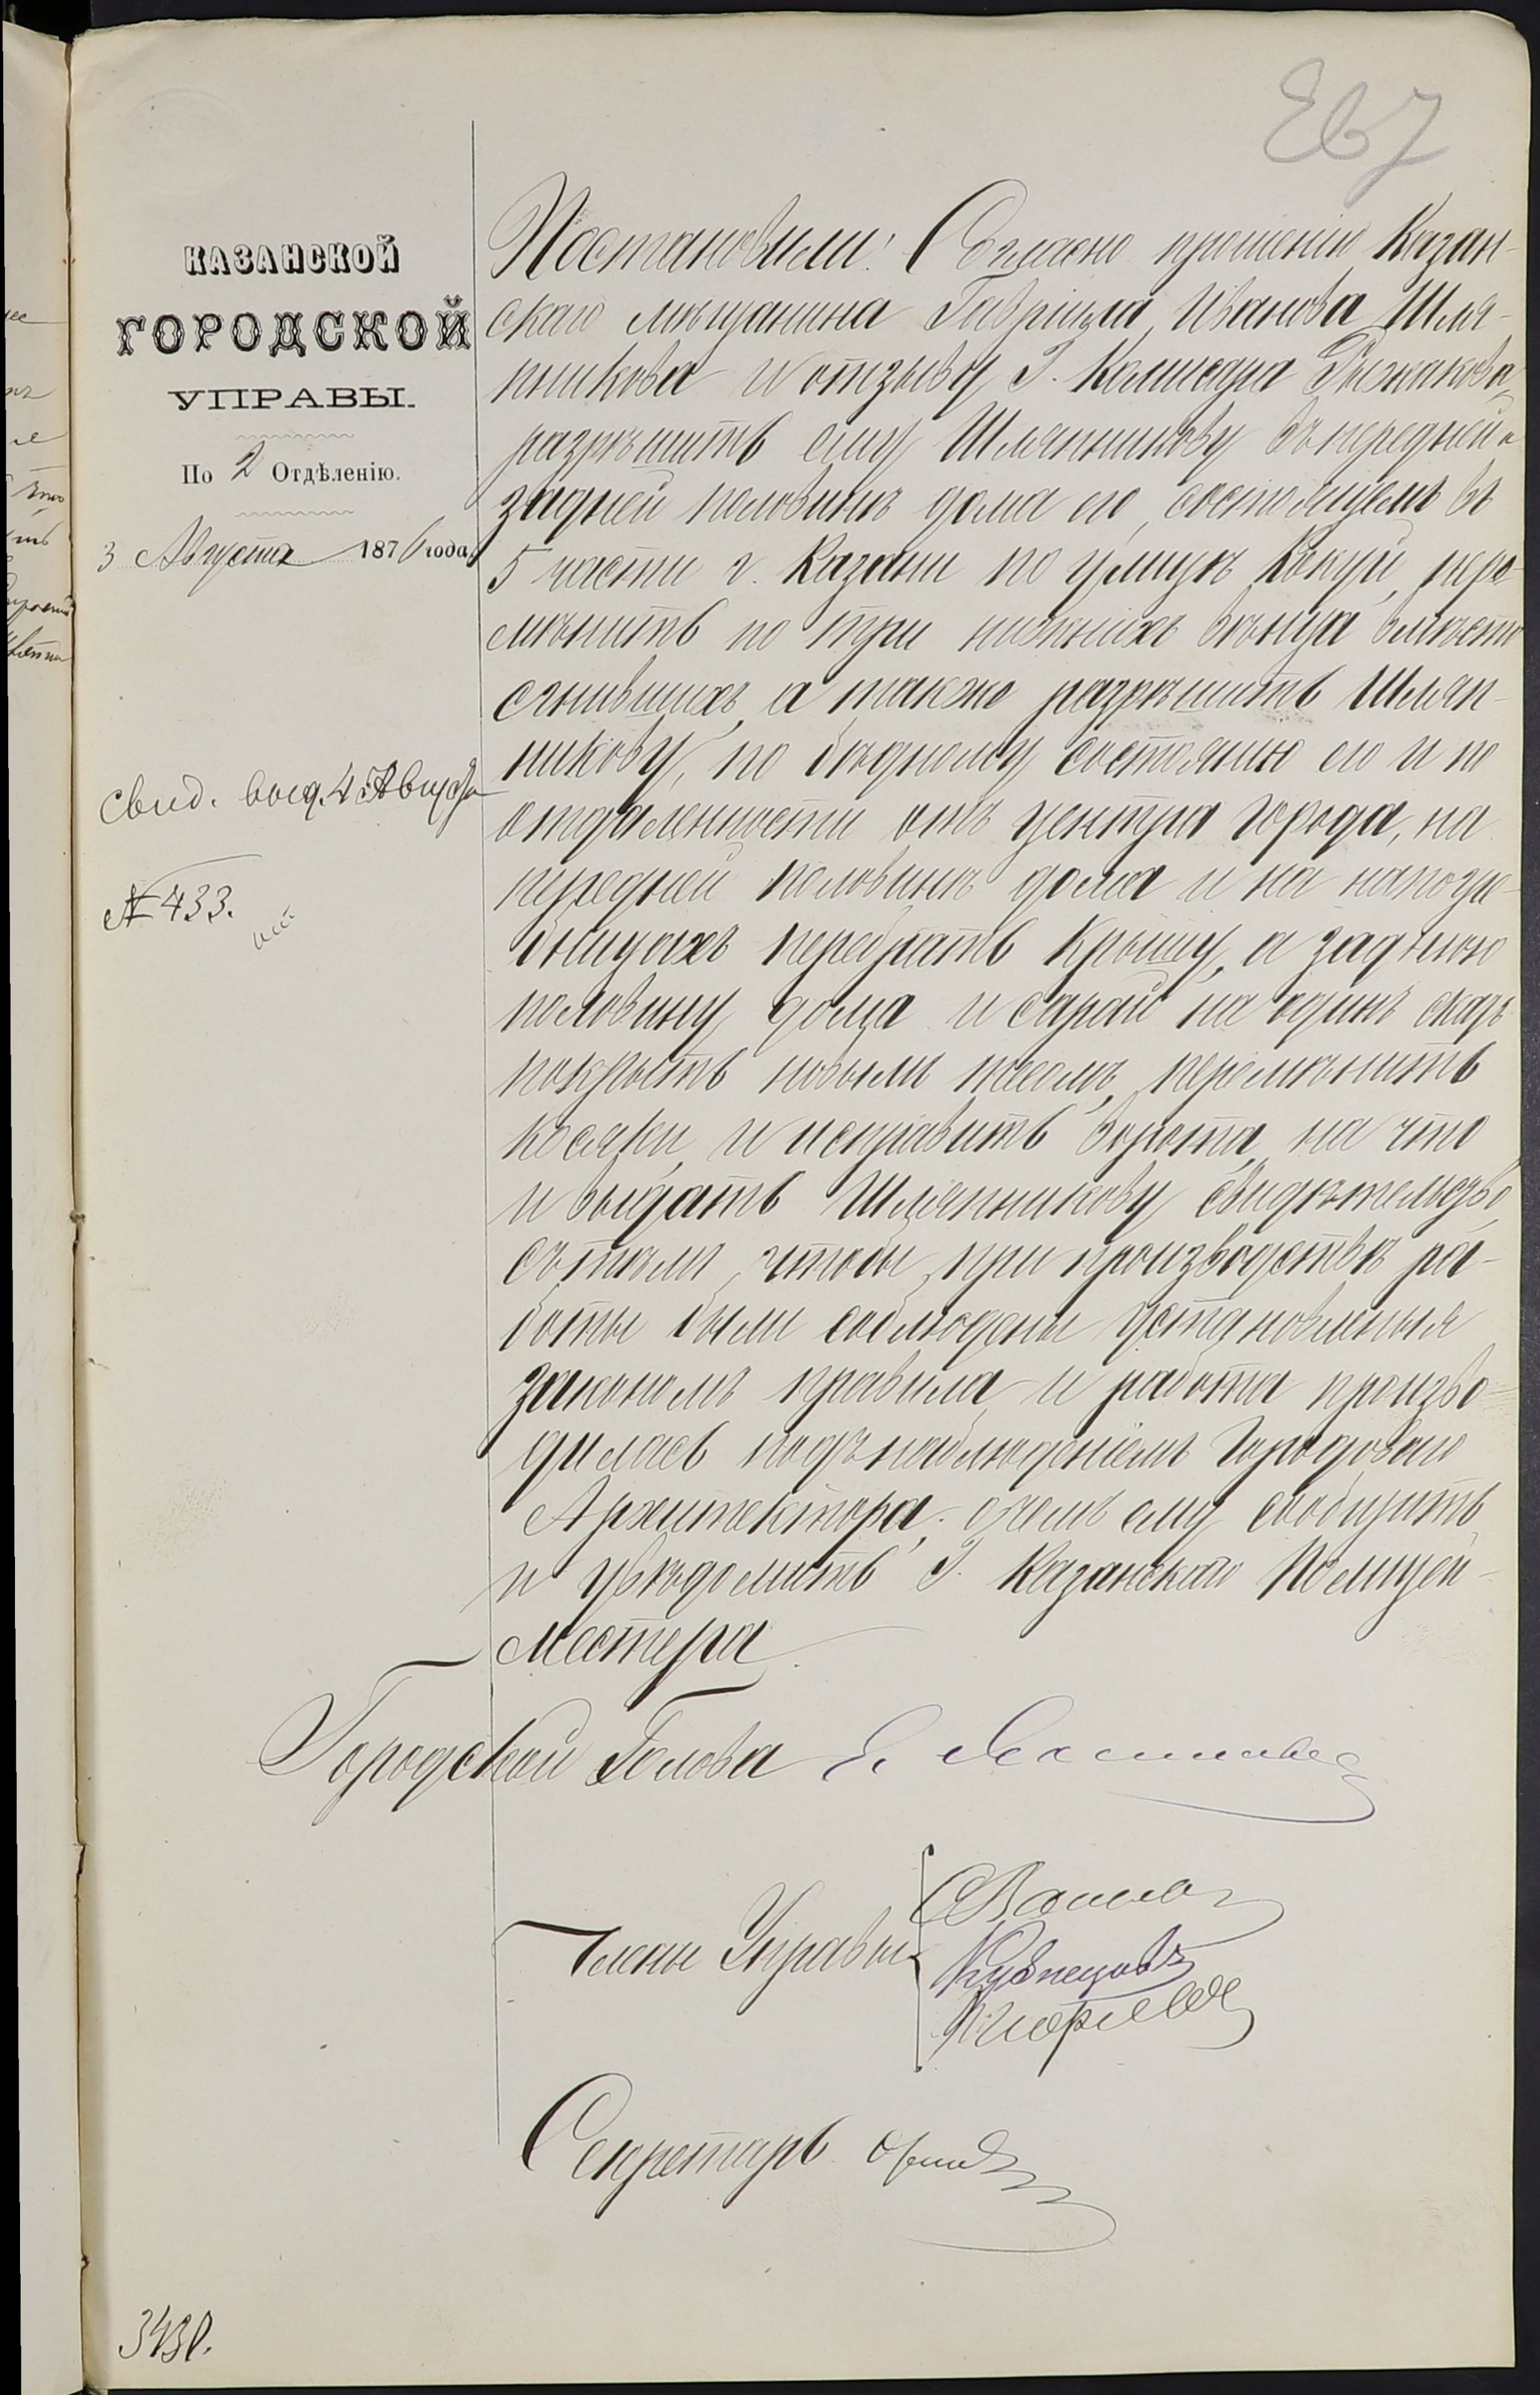 КАЗАНСКОЙ
ГОРОДСКОЙ
УПРАВЫ.
По 2 Отдѣленію.
3 Августа 1876 года
свид. выд. 4 Августа
№ 433.
Постановили: Согласно прошенію Казан-
скаго мѣщанина Гавріила Иванова Шля-
пникова и отзыву Г. Комисара Рыжакова,
разрѣшить ему Шляпникову въ передней и
задней половинѣ дома его, состоящемъ въ
5 части г. Казани по улицѣ Кокуй, пере-
мѣнить по три нижнихъ вѣнца вмѣсто
сгнившихъ, а также разрѣшить Шляп-
никову, по бѣдному состоянію его и по
отдаленности отъ центра города, на
передней половинѣ дома и на напогре-
бницахъ перебрать крышу, а заднюю
половину дома и сарай на одинъ скатъ
покрыть новымъ тесомъ, перемѣнить
косяки и исправить ворота, на что
и выдать Шляпникову свидѣтельство,
съ тѣмъ, чтобы при производствѣ ра-
боты были соблюдены установленныя
закономъ правила и работа произво-
дилась подъ наблюденіемъ Городоваго
Архитектора, о чемъ ему сообщить
и увѣдомить Г. Казанскаго Полицей-
местера.
Городской Голова
Члены Управы
Кузнецовъ
Секретарь
3430.